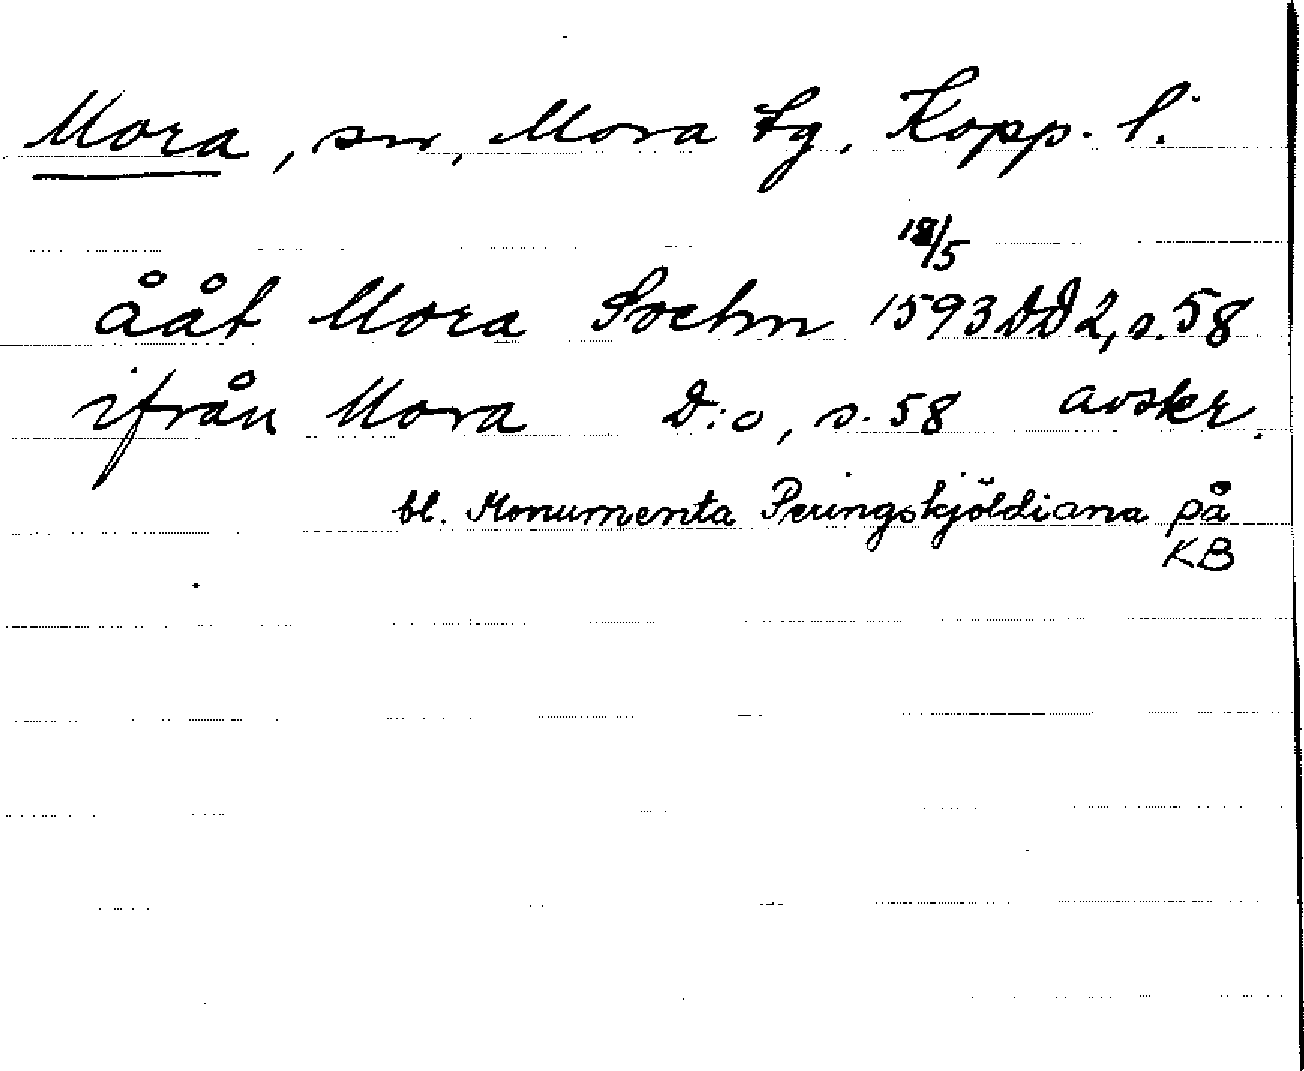 Mora, sn, Mora tg, Kopp. l.
18/5
ååt Mora Sochn 1593 DD 2, s. 58
ifrån Mora D:o, s. 58 avskr.
bl. Monumenta Peringskjöldiana på
KB